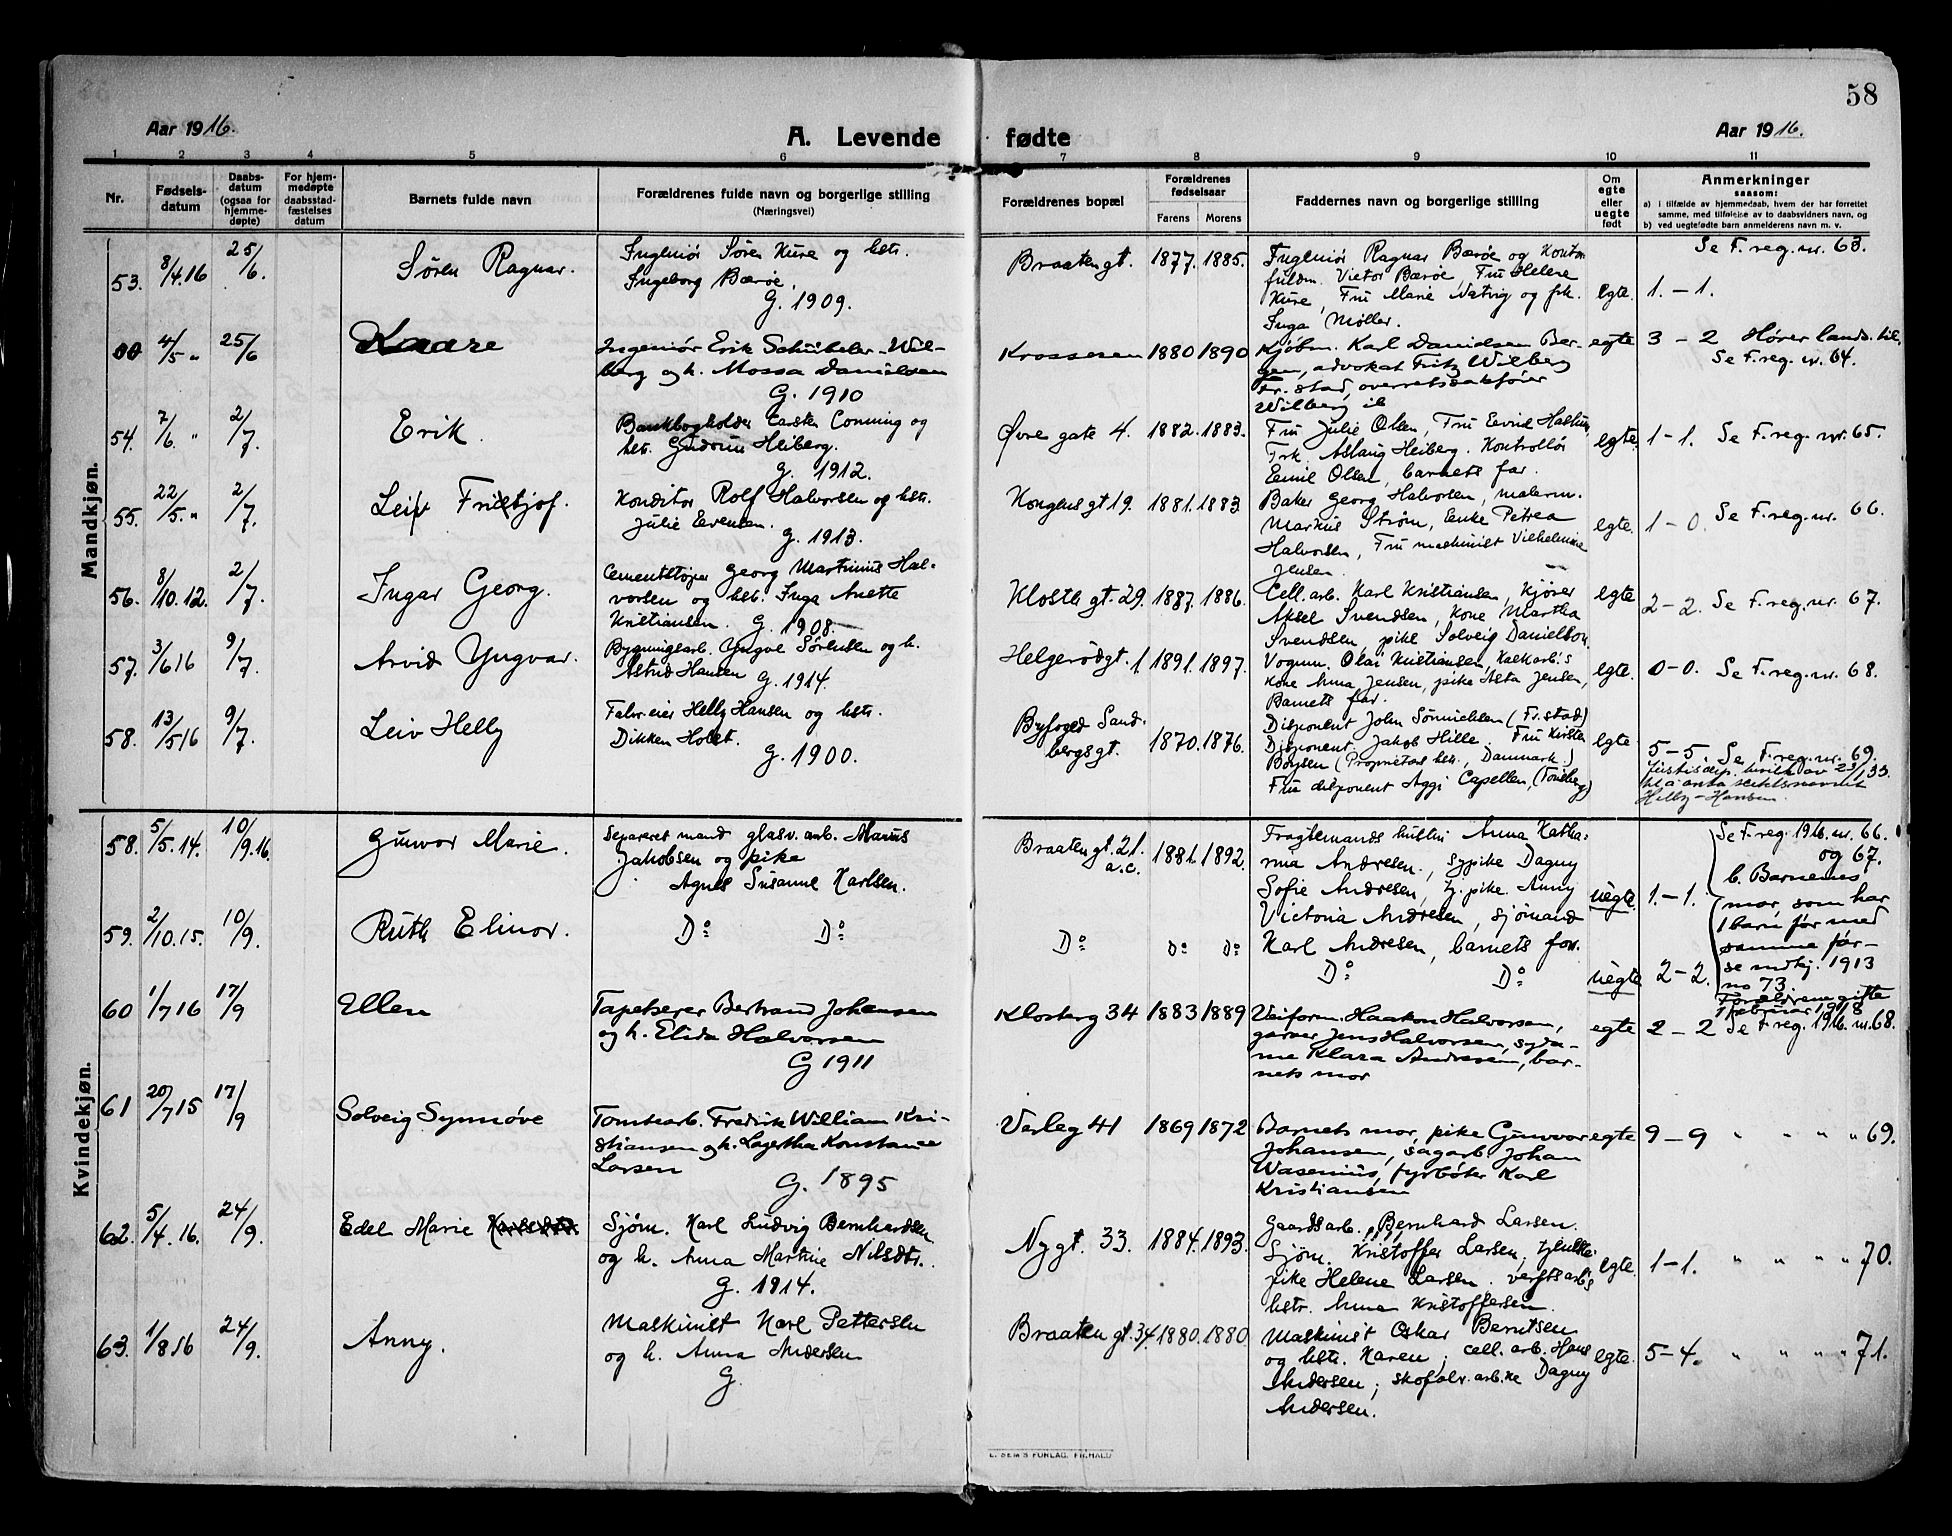 58
Aar 1916.
A. Levende fødte
Aar 1916.
1 2 3 4 5 6 7 8 9 10 11
Nr.
Fødsels-
datum
Daabs-
datum
(ogsaa for
hjemme-
døpte)
For hjem-
medøpte
daabsstad-
fæstelses
datum
Barnets fulde navn
Forældrenes fulde navn og borgerlige stilling
(Næringsvei)
Forældrenes bopæl
Forældrenes
fødselsaar
Farens
Morens
Faddernes navn og borgerlige stilling
Om
egte
eller
uegte
født
Anmerkninger
saasom:
a) i tilfælde av hjemmedaab, hvem der har forrettet
samme, med tilføielse av to daabsvidners navn, og
b) ved uegtefødte barn anmelderens navn m. v.
Mandkjøn.
53. 8/4.16 25/6. Søren Ragnar.
Ingeniør Søren Kure og hst.
Ingeborg Bærøe,
G. 1909.
Braaten gt. 1877. 1885.
Ingeniør Ragnar Bærøe og Kontor
fuldm. Victor Bærøe, Fru Helene
Kure, Fru Marie Natvig og frk.
Inga Møller.
egte. 1. – 1.
Se F. reg. nr. 63.
4/5 „ 25/6 Kaare
Ingeniør Erik Schübeler Wil-
berg og h. Mossa Danielsen
G. 1910
Krossesen 1880 1890
Kjøbm. Karl Danielsen Ber-
gen, advokat Fritz Wilberg
Fr.stad, overretssakfører
Wilberg ib
egte 3 – 2 Hører lands. til.
Se F. reg. nr. 64.
54. 7/6. „ 2/7. Erik.
Bankbogholder Carsten Conning og
hst. Gudrun Heiberg.
G. 1912.
Øvre gate 4. 1882. 1883.
Fru Julie Olsen, Fru Eevid
Frk. Aslaug Heiberg. Kontrollør
Emil Olsen, barnets far.
egte 1 – 1. Se F. reg. nr. 65.
55. 22/5. „ 2/7. Leif Fritjof.
Konditor Rolf Halvorsen og hst.
Julie Evensen.
G. 1913.
Kongens gt 19. 1881. 1883
Baker Georg Halvorsen, malerm.
Markus Strøm, Enke Petrea
Halvorsen, Fru maskinist Vilhelmine
Jensen.
egte. 1 – 0. Se F. reg. nr. 66.
56. 8/10.12. 2/7. Ingar Georg.
Cementstøper Georg Martinius Hal-
vorsen og hst. Inga Anette
Kristiansen. G. 1908.
Kloste gt. 29. 1887. 1886.
Cell. arb. Karl Kristiansen, Kjører
Aksel Svendsen, Kone Martha
Svendsen, pike Solveig Danielsen
egte 2 – 2. Se F. reg. nr. 67.
57. 3/616 9/7. Arvid Yngvar.
Bygningsarb. Yngve Sørensen og h.
Astrid Hansen G. 1914.
Helgerødgt. 1. 1891. 1897.
Vognm. Olai Kristiansen, Kalkarb.s
Kone Anna Jensen, pike Asta Jensen,
Barnets far.
egte. 0 – 0. Se F. reg. nr. 68.
58. 13/516 9/7. Leiv Helly
Fabr. eier Helly Hansen og hst.
Dikken Holst.
G. 1900.
Byfoged Sand-
bergs gt. 1870. 1876.
Disponent John Sømichsen (Fr.stad)
Disponent Jakob Hille. Fru Kirsten
Boysen (Proprietærs hst., Danmark.)
Fru disponent Aggi Capellen, (Tønsberg)
egte 5 – 5. Se F. reg. nr. 69.
Justisdep. bevilg av 23/1 33.
til å anta slektsnavnet
Helly-Hansen.
Kvindekjøn.
58. 5/5.14. 10/9.16 Gunvor Marie.
Separeret mand glasv. arb. Marius
Jakobsen og pike
Agnes Susanne Karlsen.
Braaten gt. 21.
a.c. 1881. 1892.
Fragtemands hustru Anna Katha-
rina Andresen, sypike Dagny
Sofie Andresen, tj. pike. Anny
Victoria Andresen, sjømand
Karl Andresen, barnets far.
uegte. 1. – 1.
Se F. reg. 1916. nr. 66.
og 67.
b. Barnenes
mor, som har
1 barn før med
samme far –
se mdkj. 1913
no 73.
Forældrene gifte
februar 1918
59. 2/10.15. 10/9. Ruth Elinor.
Do Do
Do Do Do
Do Do
uegte 2 – 2.
60 1/716 17/9 Ellen
Tapetserer Bertrand Johansen
og h. Elida Halvorsen
G 1911
Klosterg 34 1883 1889
Veiform. Haakon Halvorsen,
garver Jens Halvorsen, syda-
me Klara Andresen, bar-
nets mor
egte 2 – 2 Se F. reg. 1916. nr. 68.
61 20/715 17/9 Solveig Synnøve
Tomtearb. Fredrik William Kri-
stiansen og h. Lagertha Konstance
Larsen
G. 1895
Varleg 41 1869 1872
Barnets mor, pike Gunvor
Johansen, sagarb. Johan
Wasenius, fyrbøter Karl
Kristiansen
egte 9 – 9 „ „ „ „ 69.
62. 5/4.16. 24/9. Edel Marie
Sjøm. Karl Ludvig Bernhardsen
og h. Anna Martine Nilsdtr.
G. 1914.
Nygt. 33. 1884. 1893.
Gaardsarb. Bernhard Larsen.
Sjøm. Kristoffer Larsen, tjeneste-
pike Helene Larsen. verftsarb's
hstr. Anna Kristoffersen.
egte. 1 – 1. „ „ „ „ 70.
63. 1/816 24/9. Anny.
Maskinist Karl Pettersen
og h. Anna Andersen
G.
Braaten gt. 34. 1880. 1880
Maskinist Oskar Berntsen
og hstr. Karen; cell. arb. Hans
Andersen; skofabr. arb.ske Dagny
Andersen.
egte. 5 – 4. „ „ „ „ 71.
E. SEM'S FORLAG, FR.HALD